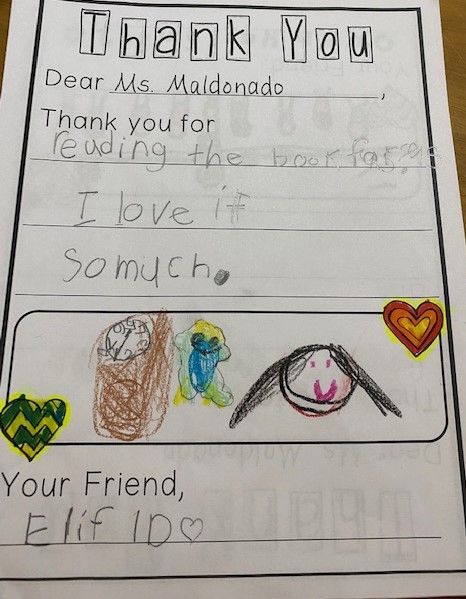 Thank You
Dear Ms. Maldonado,
Thank you for
reading the book for
I love it
So much.
Your Friend,
Elif ID♡